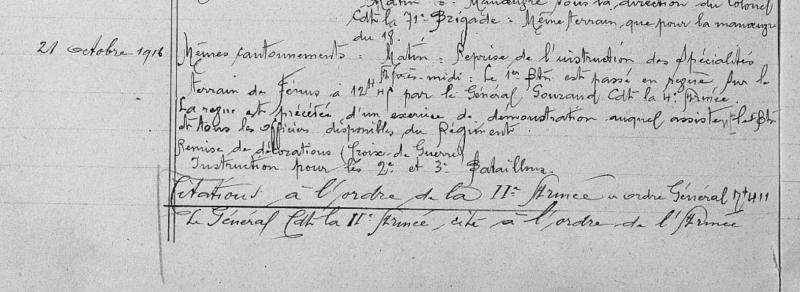 Matin = Manœuvre sous la direction du Colonel
Cdt la 71e Brigade = Même terrain, que pour la manœuvre
du 18.
21 Octobre 1916 Mêmes cantonnements = Matin = Reprise de l'instruction des spécialités
Après-midi : Le 1er Btn est passé en revue sur le
terrain de à 12H par le Général Gouraud Cdt la 4e Armée.
La revue est précédée d'un exercice de démonstration auquel assistent les Btn
et tous les officiers disponibles du Régiment.
Remise de décorations (Croix de Guerre)
Instruction pour les 2e et 3e Bataillons.
Citations à l'ordre de la IIe Armée = ordre Général N° 411
Le Général Cdt la IIe Armée, cite à l'ordre de l'Armée